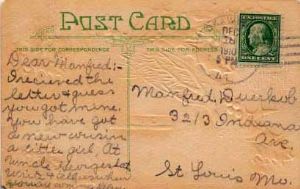 POST CARD
THIS SIDE FOR CORRESPONDENCE
THIS SIDE FOR THE ADDRESS
DEC
6 PM
U.S. POSTAGE
ONE CENT
Dear Manfred:-
I recieved the
letter & guess
you got mine.
You have got
a new cousin
a little girl. At
Uncle George's
Write &
Manfred
3213 Indiana
Ave.
St Louis Mo.